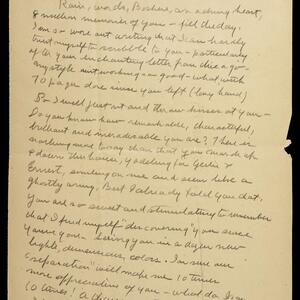 Rain, words, Borkers, an aching heart,
& million memories of you – fill the day.
I am so worn out writing that I can hardly
trust myself to scribble to you – particularly
after your enchanting letter from Chicago –
my style ain't working so good – what with
70 pages done since you left (long hand)
So I will just sit and throw kisses at you –
Do you know how remarkable, character-ful,
brilliant and irresistible you are? There is
nothing more lovely than that you march up
& down this house, yodeling for Gertie &
Ernest, smiling on me and even like a
ghostly army. But I already told you that.
You are so sweet and stimulating to remember
that I find myself "discovering" you since
you're gone – seeing you in a dozen new
lights, demeanors, colors. I'm sure our
"separation" will make me 10 times
more appreciative of you – what do I say
10 times!